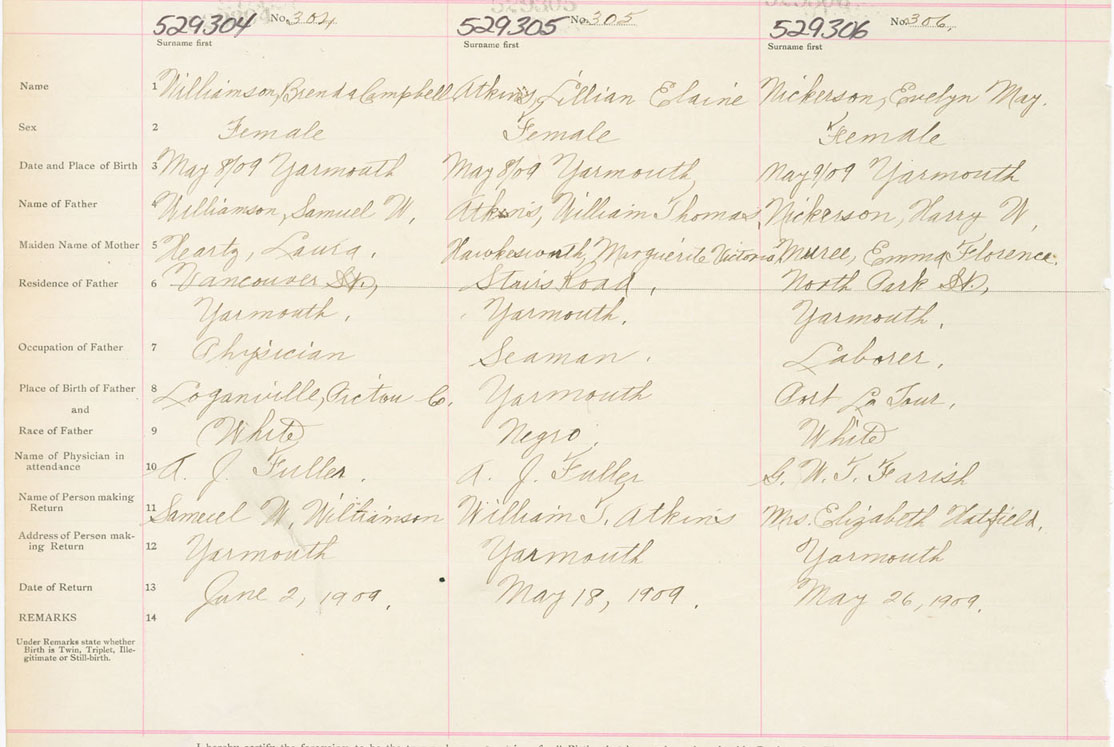 529304 No. 304. 529305 No. 305 529306 No. 306.
Surname first Surname first Surname first
Name 1 Williamson, Brenda Campbell Atkins, Lillian Elaine Nickerson, Evelyn May.
Sex 2 Female Female Female
Date and Place of Birth 3 May 8/09 Yarmouth May 8/09 Yarmouth May 9/09 Yarmouth
Name of Father 4 Williamson, Samuel W. Atkins, William Thomas, Nickerson, Harry W.
Maiden Name of Mother 5 Heartz, Laura. Hawkesworth, Marguerite Victoria, Muree, Emma Florence.
Residence of Father 6 Vancouver St., Stairs Road, North Park St.,
Yarmouth. Yarmouth. Yarmouth.
Occupation of Father 7 Physician Seaman. Laborer.
Place of Birth of Father 8 Loganville, Pictou Co. Yarmouth Port La Tour.
and
Race of Father 9 White Negro. White
Name of Physician in
attendance 10 A. J. Fuller. A. J. Fuller G. W. T. Farish
Name of Person making
Return 11 Samuel W. Williamson William T. Atkins Mrs. Elizabeth Hatfield.
Address of Person mak-
ing Return 12 Yarmouth Yarmouth Yarmouth
Date of Return 13 June 2, 1909. May 18, 1909. May 26, 1909.
REMARKS 14
Under Remarks state whether
Birth is Twin, Triplet, Ille-
gitimate or Still-birth.